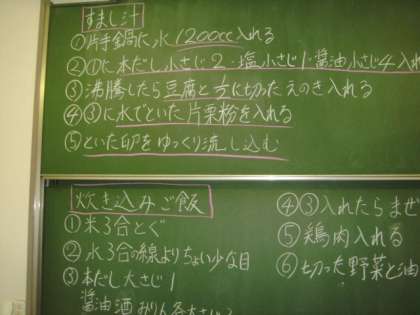 すまし汁
①片手鍋に水1200cc入れる
②①に本だし小さじ2・塩小さじ1・醤油小さじ4入れ
③沸騰したら豆腐と に切ったえのき入れる
④③に水でといた片栗粉を入れる
⑤といた卵をゆっくり流し込む
炊き込みご飯
①米3合とぐ
②水3合の線よりちょい少な目
③本だし大さじ1
醤油 酒 みりん 各大さじ
④③入れたらまぜ
⑤鶏肉入れる
⑥切った野菜と油